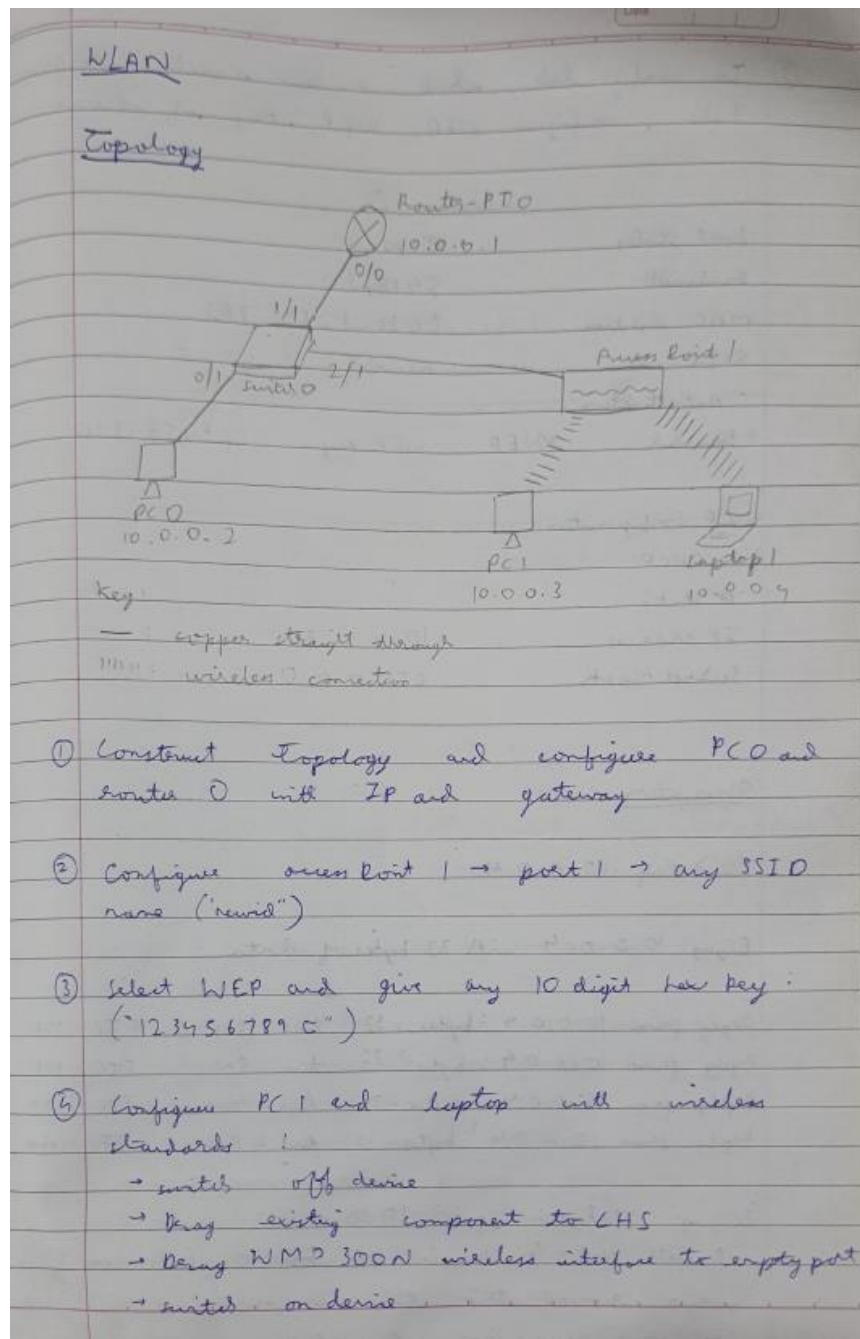 WLAN
Topology
Router-PT0
10.0.0.1
0/0
1/1
0/1
Switch 0
2/1
Access Point 1
PC0
10.0.0.2
PC1
10.0.0.3
Laptop 1
10.0.0.4
Key:
— : copper straight through
'''''' : wireless connection
① Construct Topology and configure PC0 and
router 0 with IP and gateway
② Configure access Point 1 → port 1 → any SSID
name ("newid")
③ Select WEP and give any 10 digit hex key :
("123456789C")
④ Configure PC1 and laptop with wireless
standards :
→ switch off device
→ Drag existing component to LHS
→ Drag WMP 300N wireless interface to empty port
→ switch on device